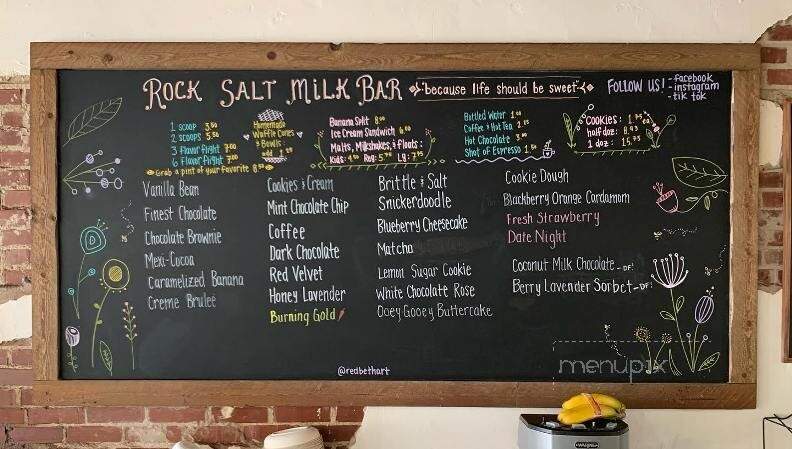 ROCK SALT MILK BAR
"because life should be sweet"
FOLLOW US!
- facebook
- instagram
- tik tok
1 scoop 3.50
2 scoops 5.50
3 Flavor flight 7.00
6 Flavor flight
Grab a pint of your favorite 8.50
Homemade
Waffle Cones
& Bowls
add
Banana Split 8.00
Ice Cream Sandwich 6.00
Malts, Milkshakes, & floats:
Kids: Reg: 5.75 Lg: 7.25
Bottled Water 1.00
Coffee & Hot Tea
Hot Chocolate
Shot of Espresso 1.50
Cookies: 1.75
half doz: 8.93
1 doz: 15.75
Vanilla Bean
Finest Chocolate
Chocolate Brownie
Mexi-Cocoa
Caramelized Banana
Creme Brulee
Cookies & Cream
Mint Chocolate Chip
Coffee
Dark Chocolate
Red Velvet
Honey Lavender
Burning Gold
Brittle & Salt
Snickerdoodle
Blueberry Cheesecake
Matcha
Lemon Sugar Cookie
White Chocolate Rose
Ooey Gooey Buttercake
Cookie Dough
Blackberry Orange Cardamom
Fresh Strawberry
Date Night
Coconut Milk Chocolate - DF!
Berry Lavender Sorbet - DF!
@redbethart
menupix